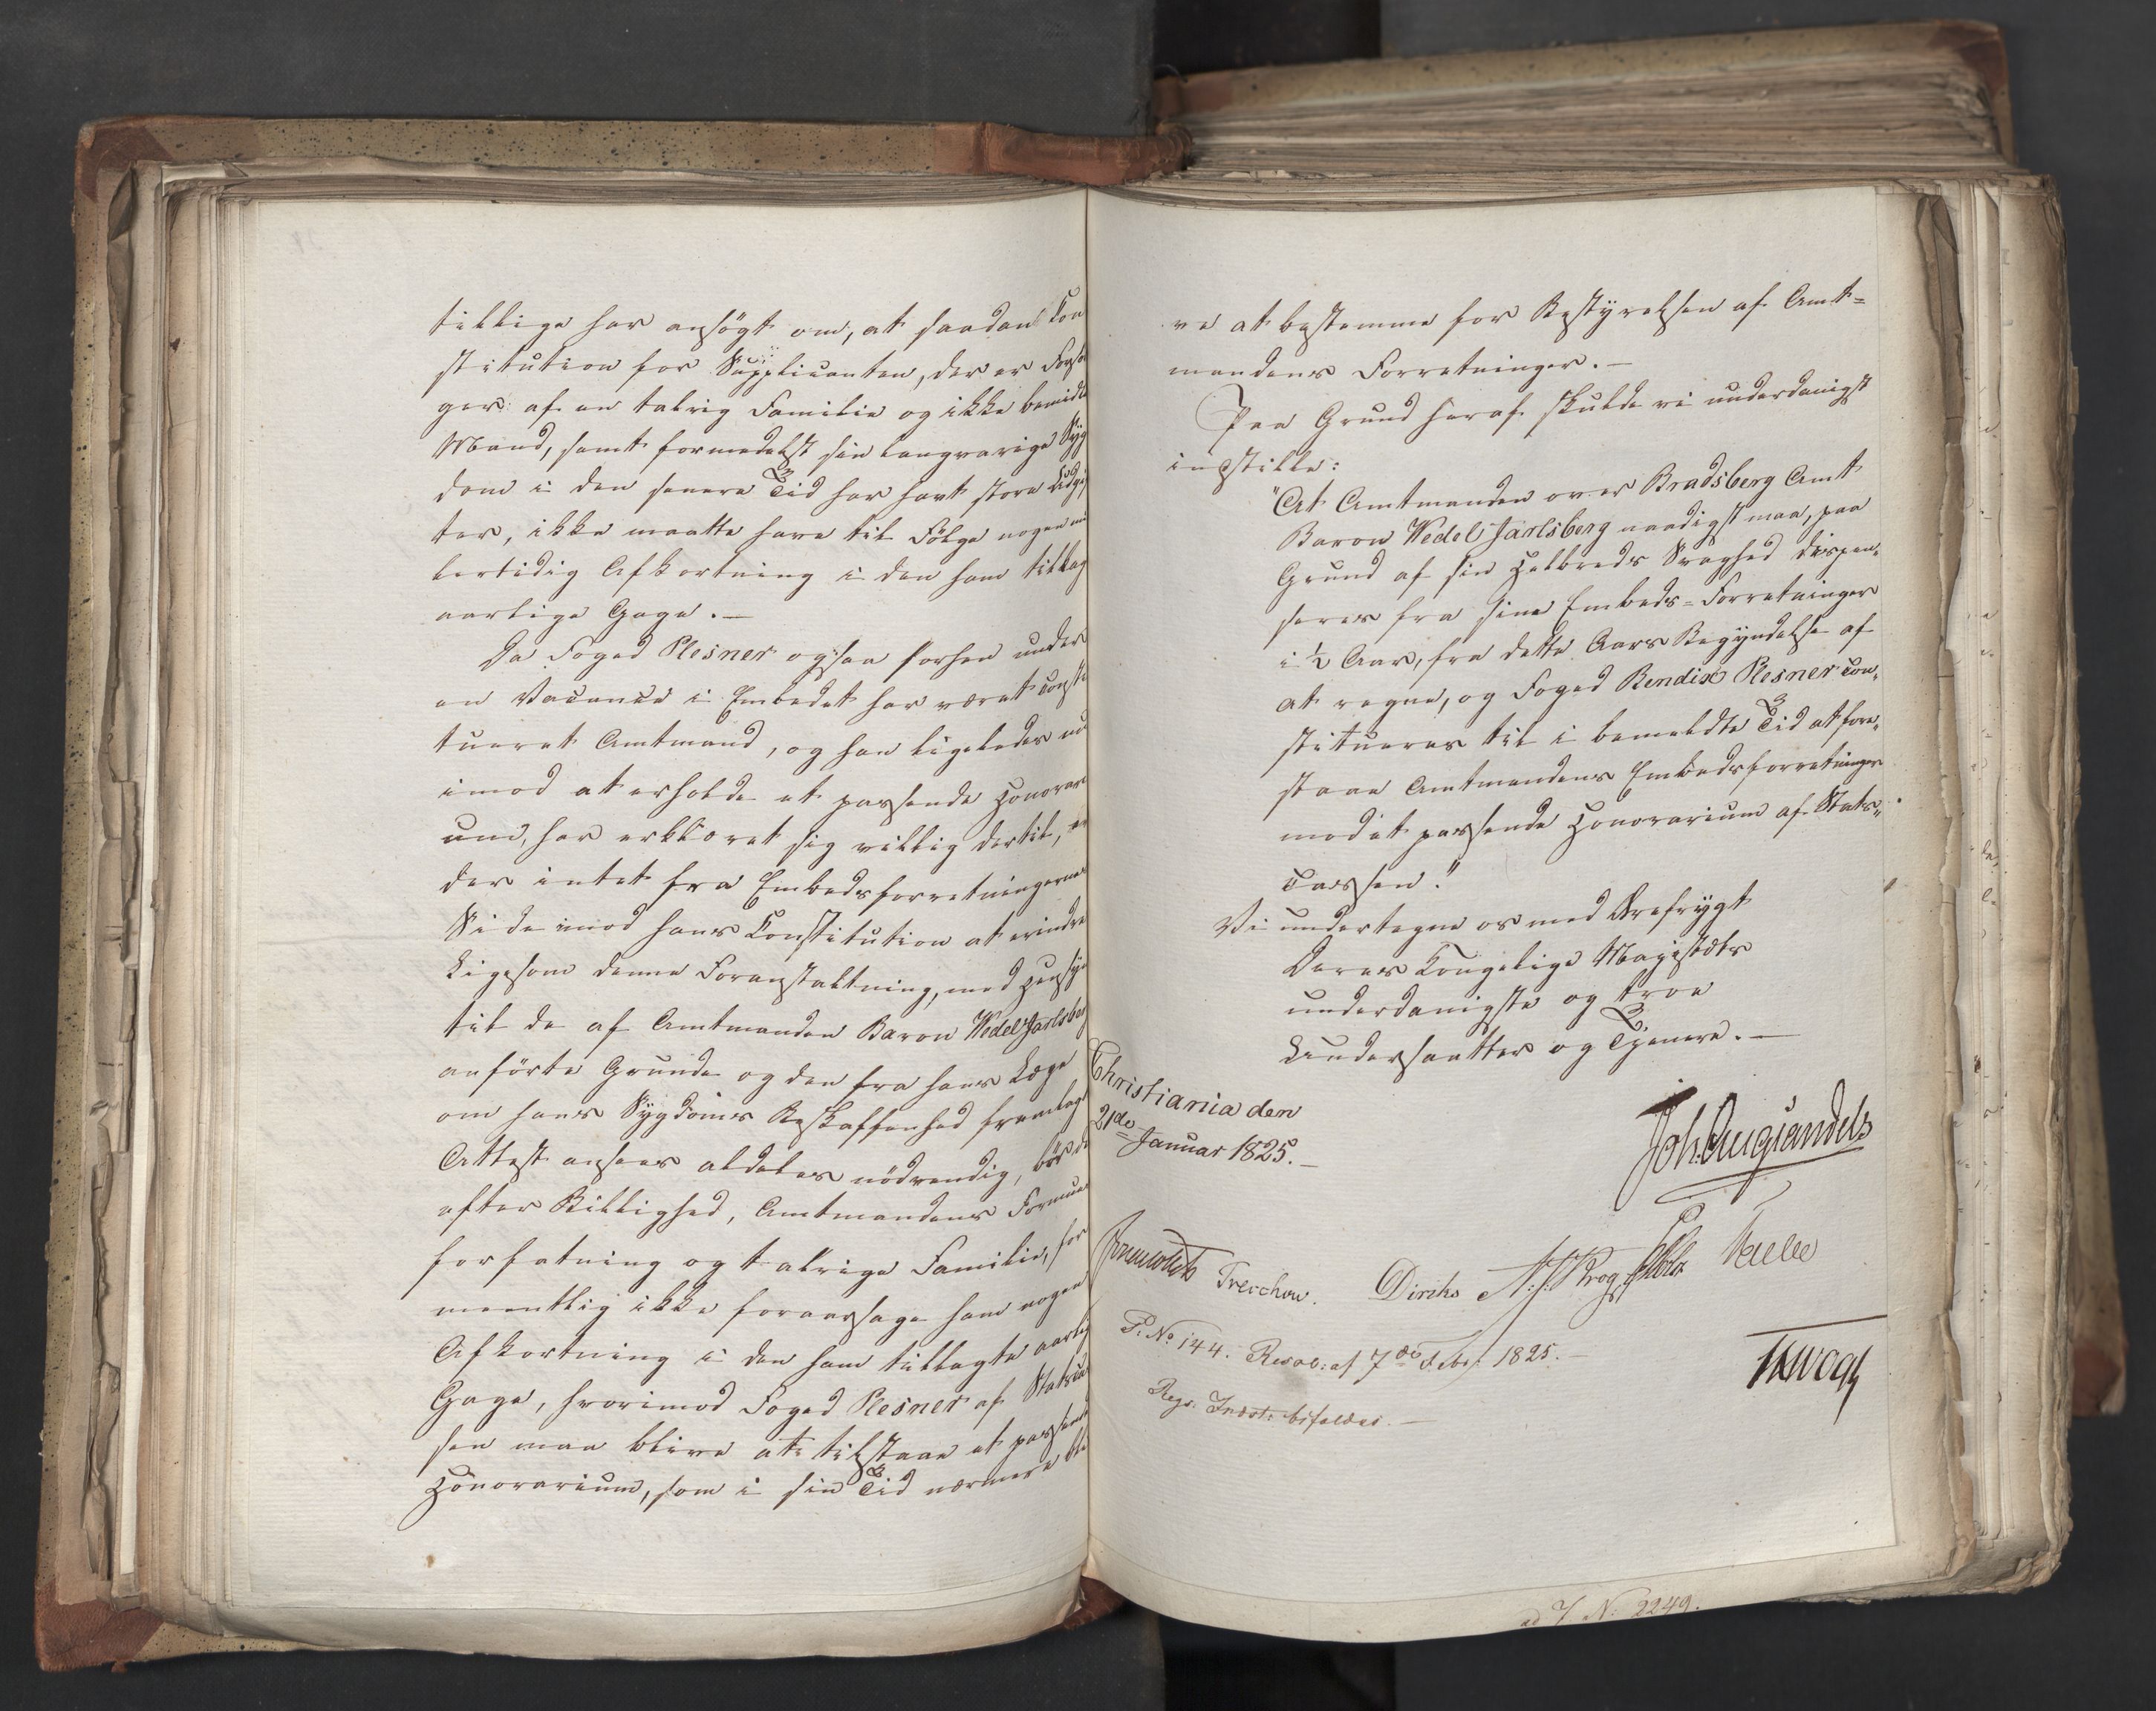 tillige har ansögt om, at saadan Con
stitution for Supplicanten, der er Forsör
ger af en talrig Familie og ikke bemidlet
Mand, samt formedelst sin langvarige Syg
dom i den senere Tid har havt store Udgif
ter, ikke maatte have til Fölge nogen mid
lertidig Afkortning i den ham tillag
aarlige Gage.—
Da Foged Plesner ogsaa forhen under
en Vacance i Embedet har været consti
tueret Amtmand, og han ligeledes nu
imod at erholde et passende Honorari
um, har erklæret sig villig dertil, er
der intet fra Embedsforretningernes
Side imod hans Constitution at erindre
Ligesom denne Foranstaltning, med Hensyn
til de af Amtmanden Baron Wedel Jarlsberg
anförte Grunde og den fra hans Læge
om hans Sygdoms Beskaffenhed fremlagte
Attest ansees aldeles nödvendig, bör de
efter Billighed, Amtmandens Formues
forfatning og talrige Familie, for
meentlig ikke foraarsage ham nogen
Afkortning i den ham tillagte aarlig
Gage, hvorimod Foged Plesner af Statscas
sen maa blive at tilstaae et passende
Honorarium, som i sin Tid nærmere bli
ve at bestemme for Bestyrelsen af Amt=
mandens Forretninger.—
Paa Grund heraf skulde vi underdanigst
indstille:
"At Amtmanden over Bradsberg Amt
Baron Wedel Jarlsberg naadigst maa, paa
Grund af sin Helbreds Svaghed dispen„
seres fra sine Embeds=Forretninger
i ½ Aar, fra dette Aars Begyndelse af
at regne, og Foged Bendix Plesner con„
stitueres til i bemeldte Tid at fore„
staae Amtmandens Embedsforretninger
mod et passende Honorarium af Stats„
cassen."
Vi undertegne os med Ærefrygt
Deres Kongelige Majestæts
underdanigste og troe
Undersaatter og Tjenere.—
Christiania den
21de Januar 1825.—
Joh. Aug. Sandels
Sommerhielm Treschow. Diriks
P. No 144. Resol: af 7de Febr. 1825.—
Regs. Indst: bifaldes.—
ad J. N: 2249.